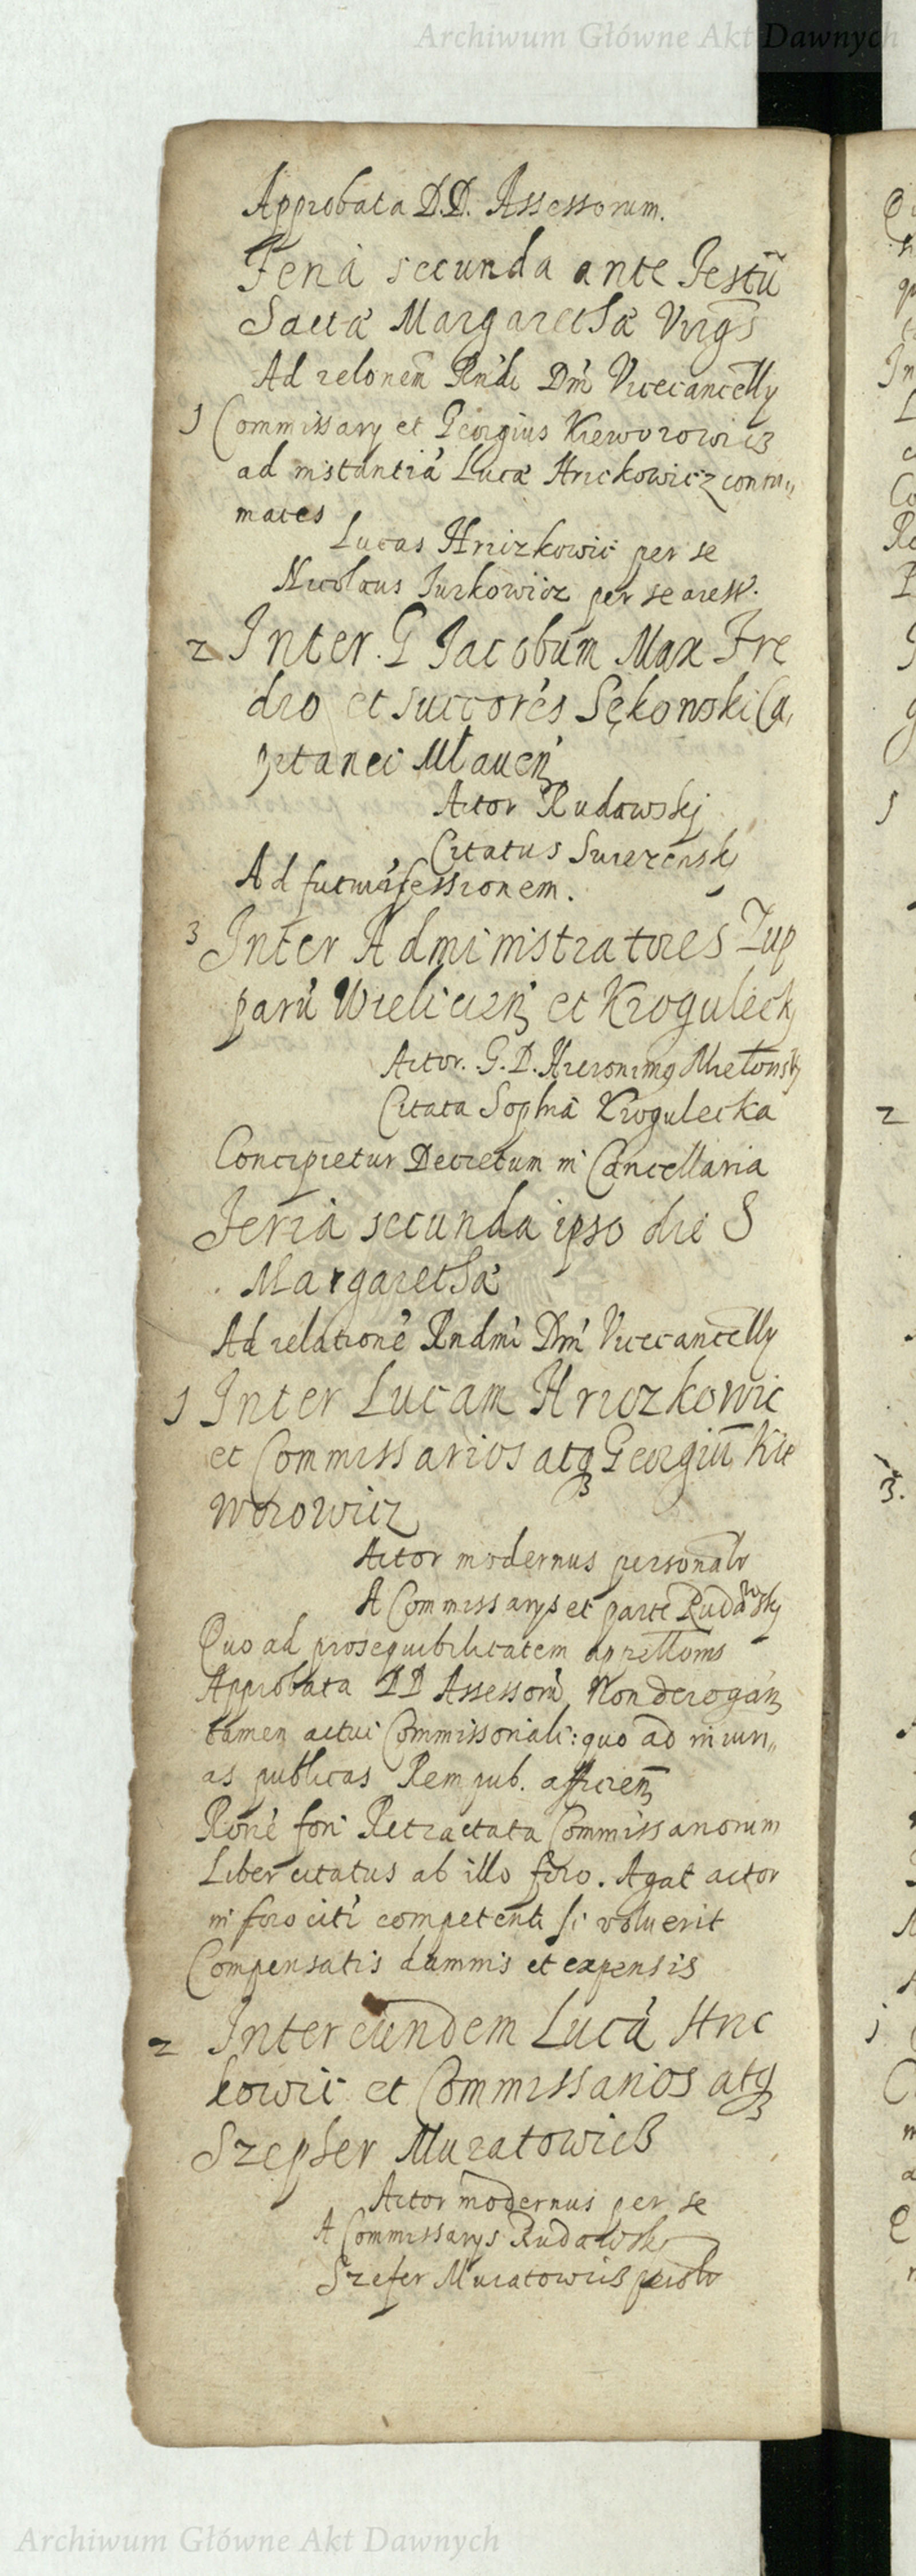 Archiwum Główne Akt Dawnych
Approbata D.D. Assessorum.
Feria secunda ante Festū
Sactæ Margarethæ Virgs
Ad relonem Rndi Dni Vicecancelly
1 Commissary et Georgius Kieworowicz
ad instantiā Lucæ Hrickowicz contu„
maces
Lucas Hrizkowic per se
Nicolaus Jurkowicz per se arest.
2 Inter G Jacobum Max Fre
dro et succores Sękowski Ca,
pitanei Mławen
Actor Rudawskj
Citatus
Ad futurā sessionem.
3 Inter Administratores Zup
parū Wielicien et Krogulecky
Actor. G. D. Hieronimg
Citata Sophia Krogulecka
Concipietur Decretum in Cancellaria
Feria secunda ipso die S
Margarethæ
Ad relatione Rndmi Dni Vicecancelly
1 Inter Lucam Hriczkowic
et Commissarios atq Georgiū Kie
worowicz
Actor modernus personalr
A Commissarys et parte Rudawsky
Quo ad prosequibilitatem appellonis
Approbata DD Assessorū Non derogan
tamen actui Commissoriali: quo ad iniuri„
as publicas Rempub. afficien
Rone fori Retractata Commissariorum
Liber citatus ab illo foro. Agat actor
in foro citi competenti si voluerit
Compensatis damnis et expensis
2 Inter eundem Lucā Hric
kowic et Commissarios atq
Szepher Muratowicz
Actor modernus per se
A Commissarys Rudawsky
Szefer Muratowicz persolr
Archiwum Główne Akt Dawnych